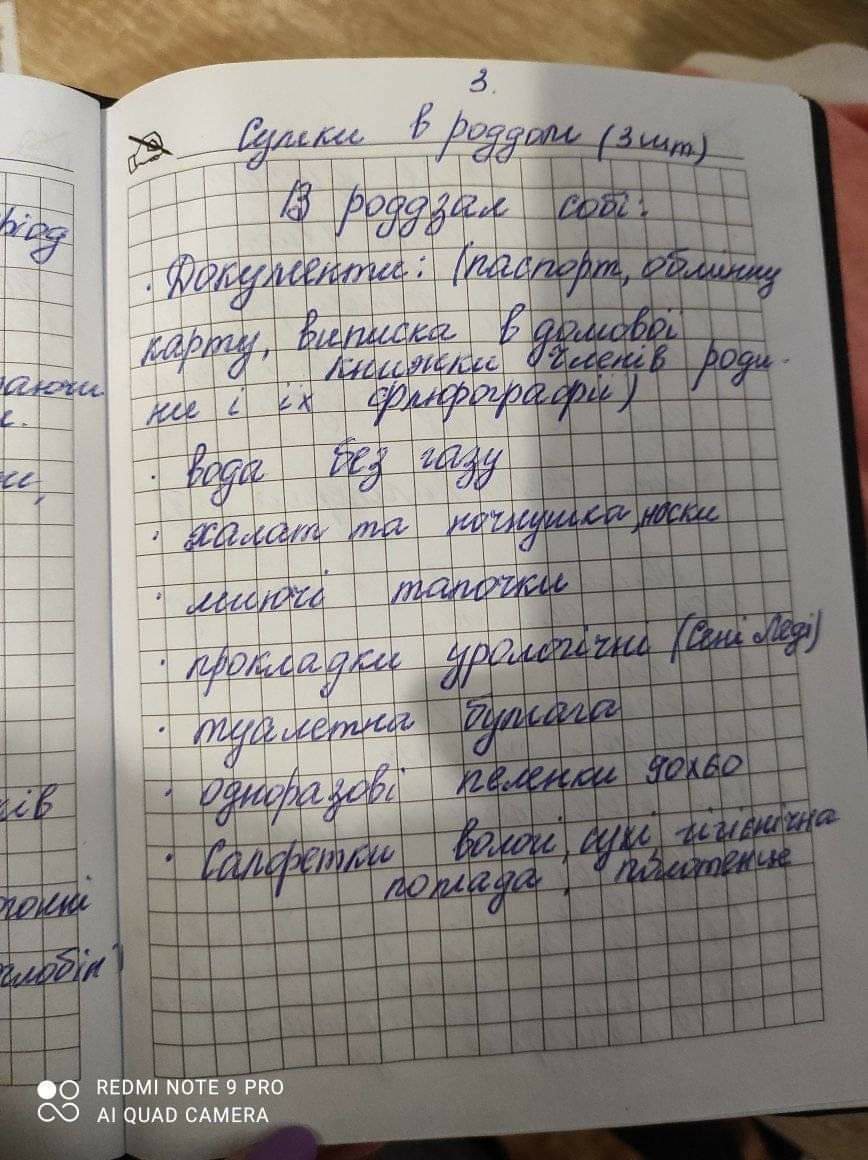 3.
Сумки в роддом (3 шт)
В роддзал собі:
· Документи: (паспорт, обмінну
карту, виписка в домової
книжки членів роди-
ни і їх флюрографії)
· вода без газу
· халат та ночнушка, носки
· миючі тапочки
· прокладки урологічні (Сені Леді)
· туалетна бумага
· одноразові пеленки 90х60
· Салфетки вологі, сухі, гігієнічна
помада, полотенце
ріод
аючи
ків
глобін
REDMI NOTE 9 PRO
AI QUAD CAMERA